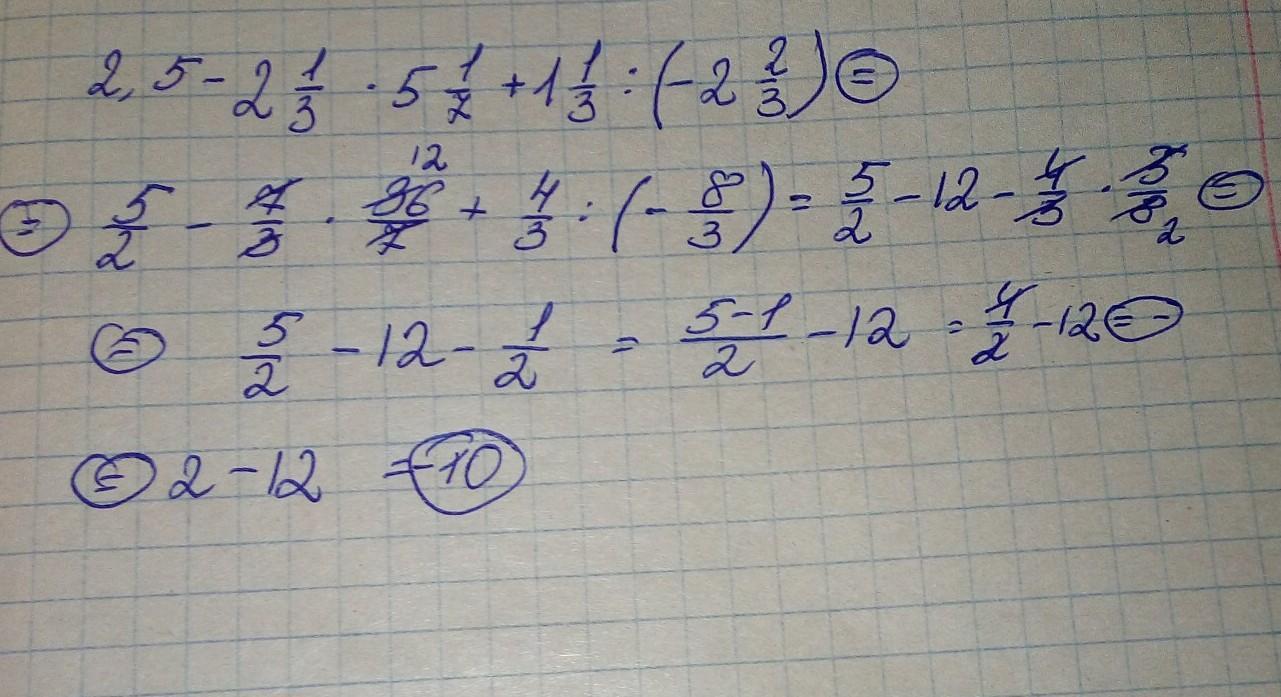 2,5 - 2 1/3 · 5 1/7 + 1 1/3 : (-2 2/3) =
= 5/2 - 7/3 · 36/7 12 + 4/3 : (- 8/3) = 5/2 - 12 - 4/3 · 3/8 2 =
= 5/2 - 12 - 1/2 = 5-1/2 - 12 = 4/2 - 12 =
= 2 - 12 = -10